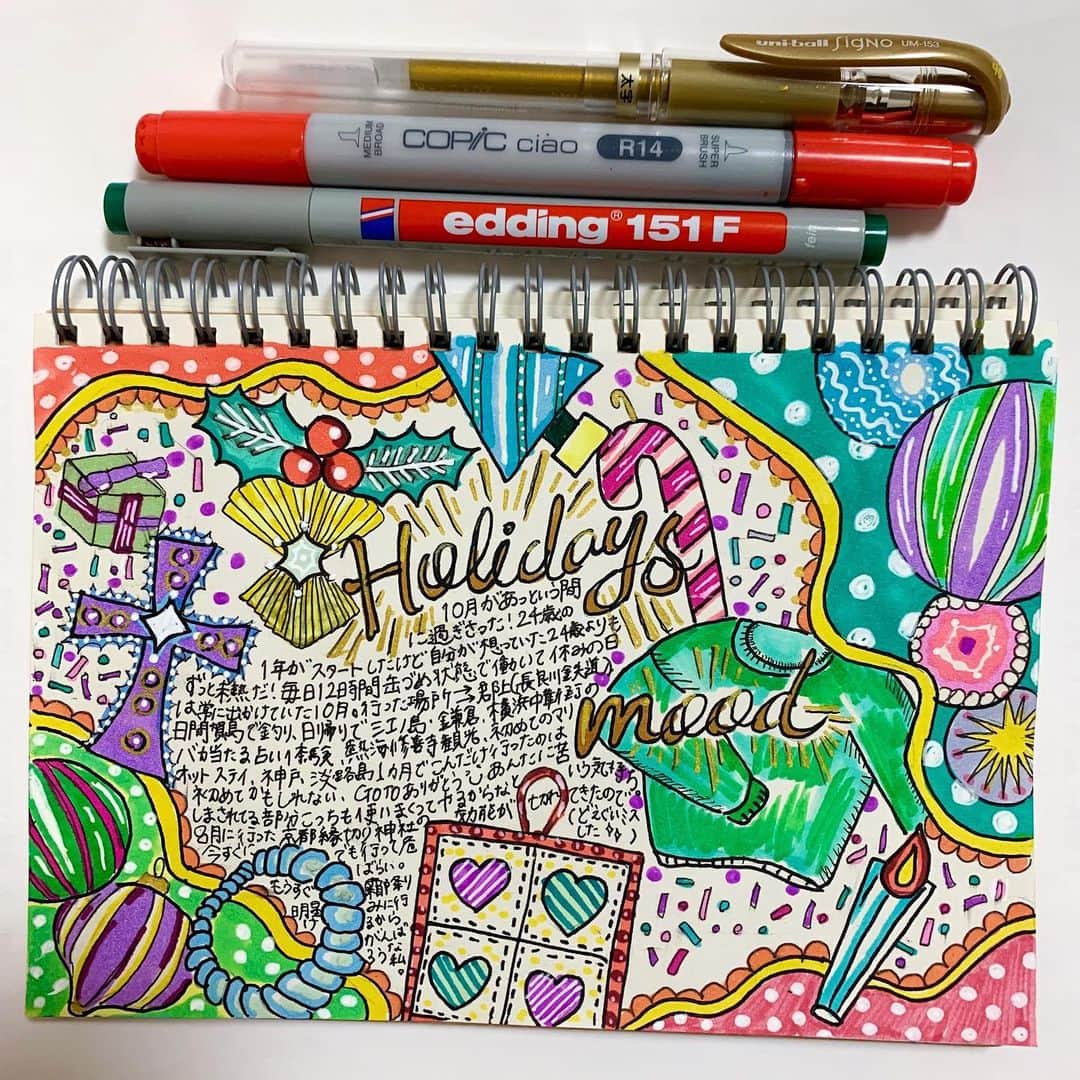 uni-ball SigNO UM-153
太字
MEDIUM BROAD
COPIC ciao
R14
SUPER BRUSH
edding® 151 F
fein
Holidays
10月があっという間
に過ぎさった！24歳の
1年がスタートしたけど自分が想っていた24歳よりも
ずっと未熟だ！毎日12時間缶づめ状態で働いて休みの日
は常に出かけていた10月。行った場所
日間賀島で釣り、日帰りで江ノ島・鎌倉、横浜中華街
mood
当たる占い 熱海 修善寺観光、初めてのマリ
オットステイ、神戸、淡路島1か月でこんだけ行ったのは
初めてかもしれない、GOTOありがとう あんたに苦
しまされてる部分こっちも使いまくってやるからな という気
8月に行った京都縁切り神社 効能が 切れてきたので
今すぐにでも行って厄 （どえぐいミス
ばらい。 した
もうすぐ
みに行
るから、
がんば
ろうな私。